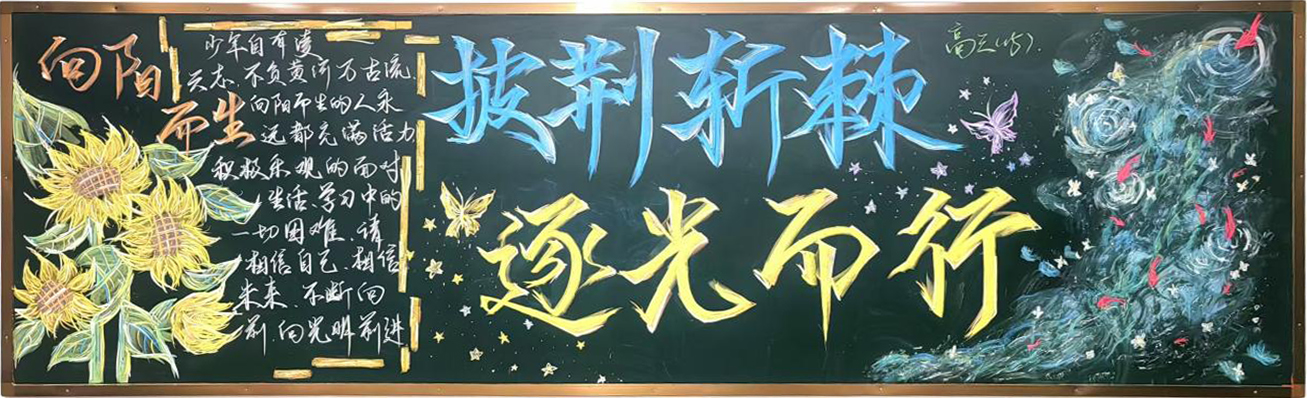 向阳
而生
少年自有凌
云志,不负黄河万古流.
向阳而生的人永
远都充满活力,
积极乐观的面对
生活、学习中的
一切困难、请
相信自己、相信
未来、不断向
前向光明前进
披荆斩棘
逐光而行
高三(15).